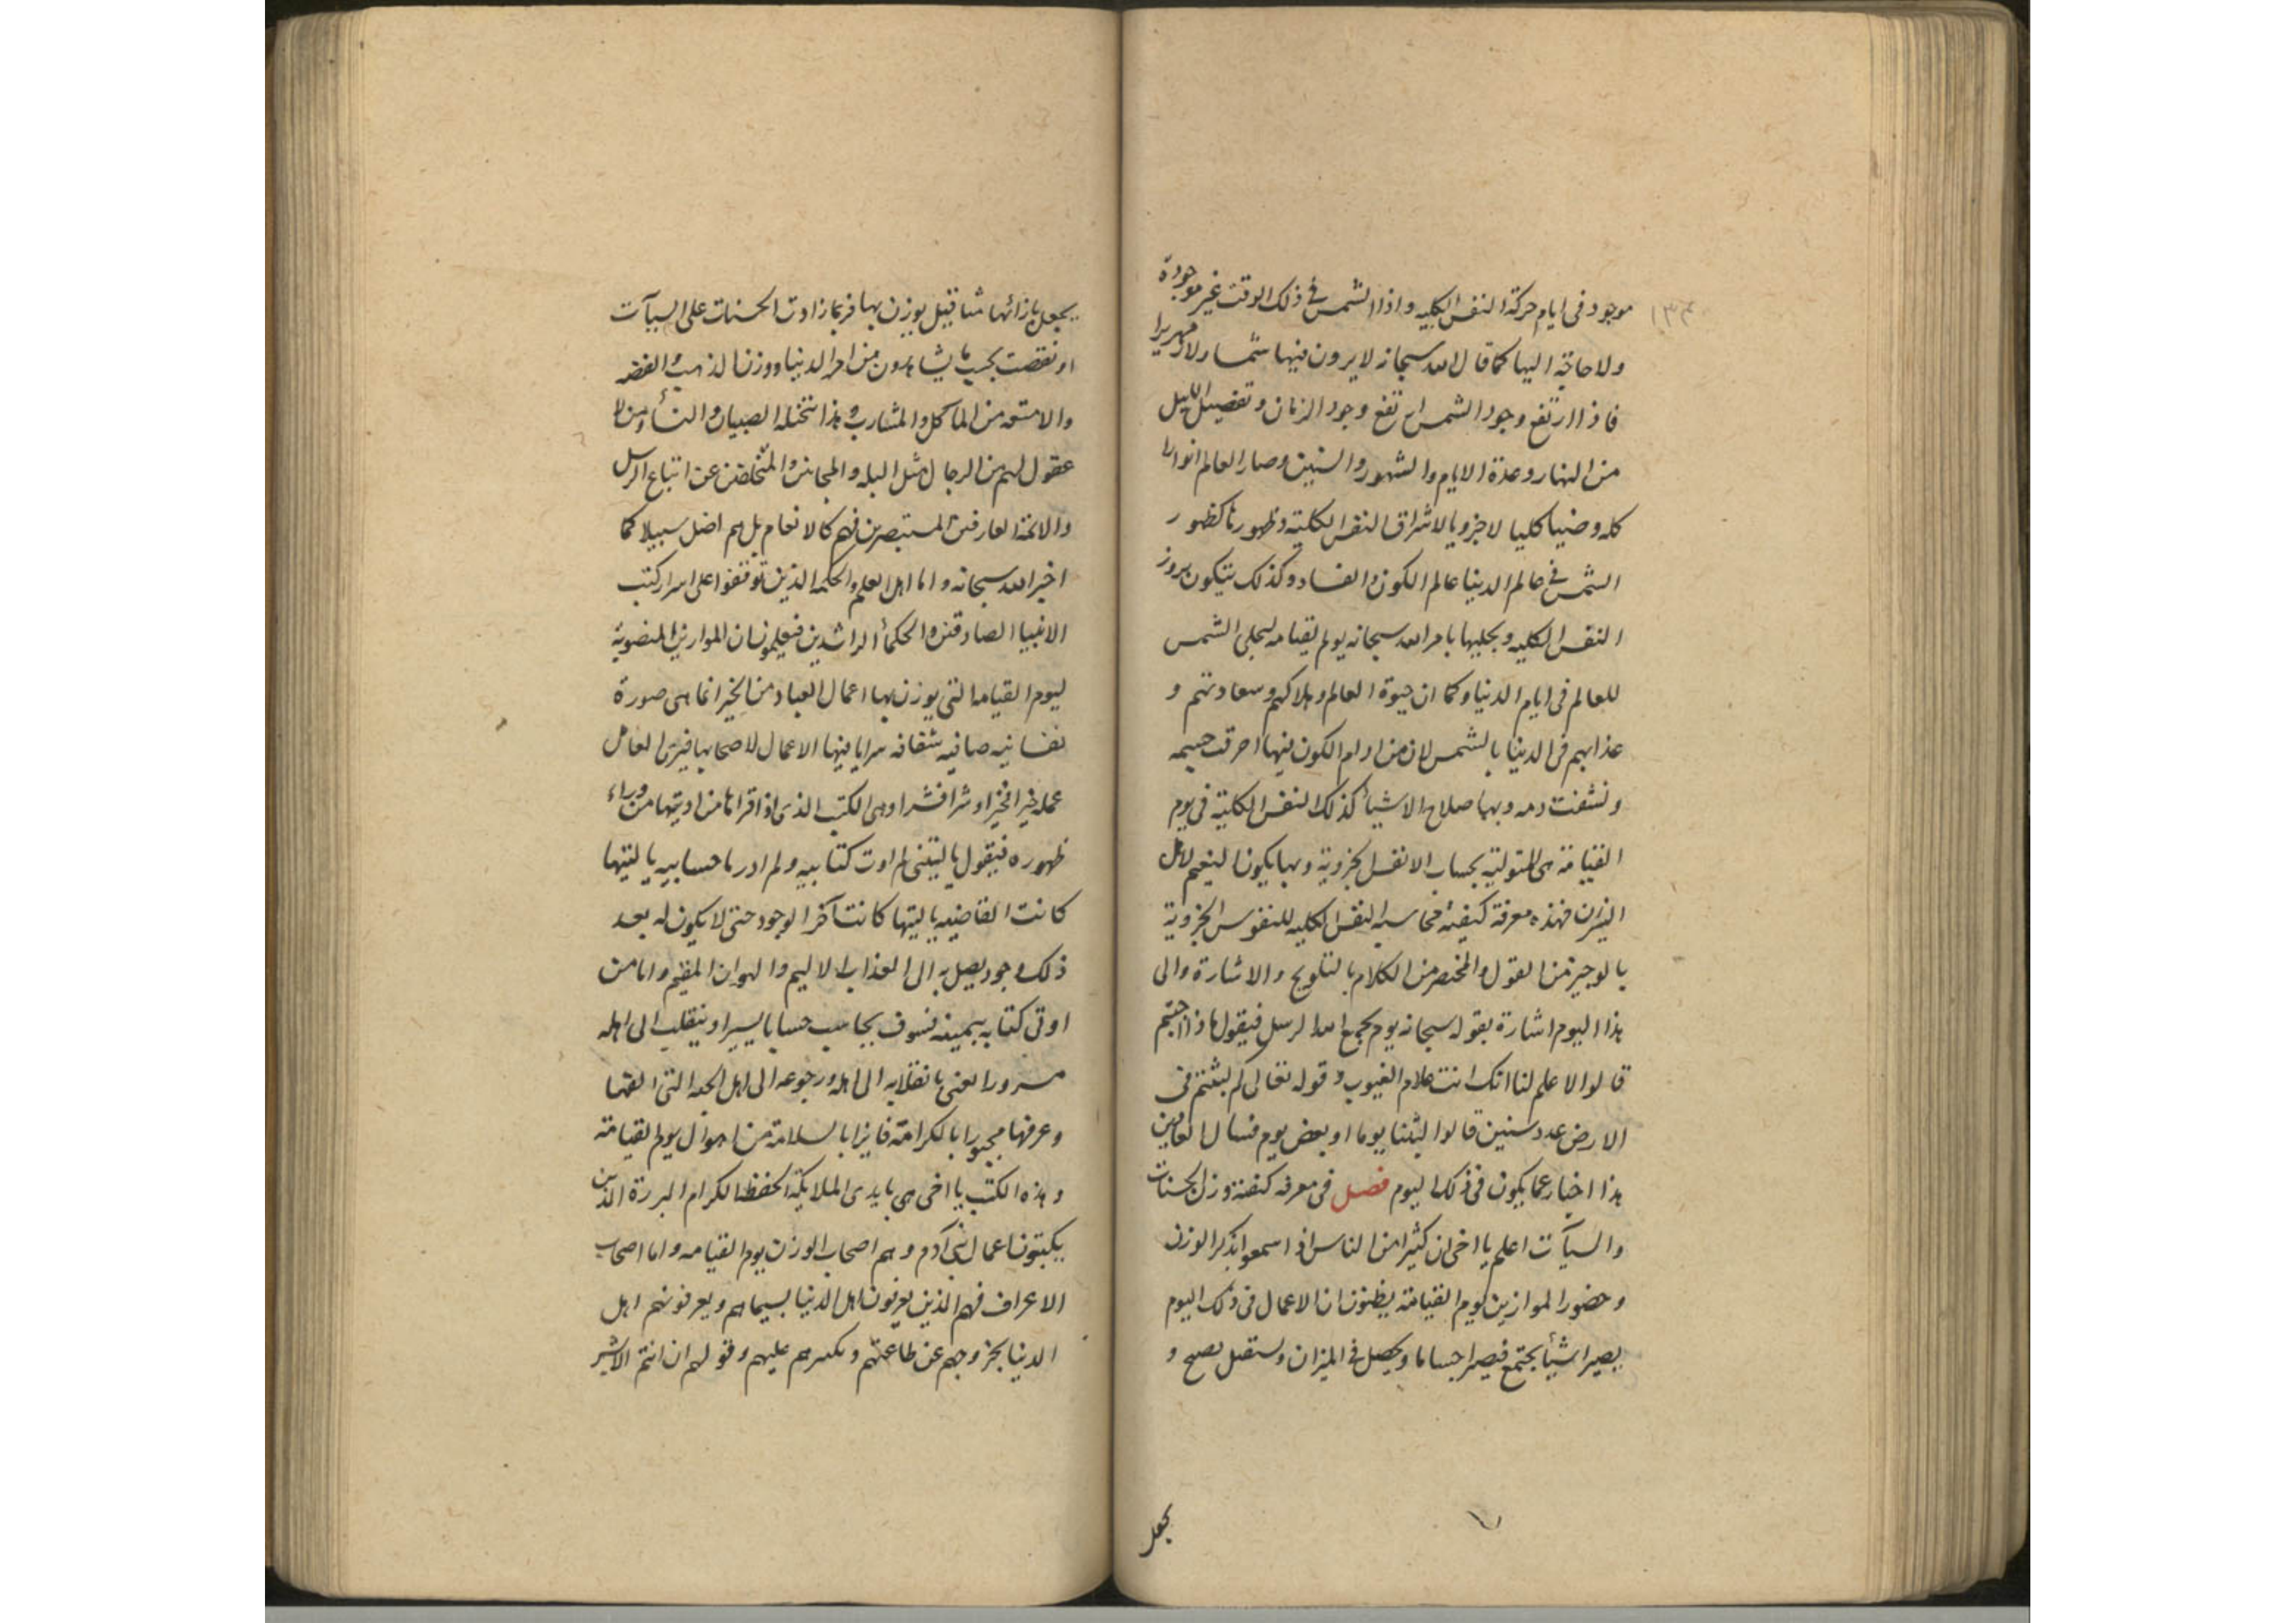 ١٣٤
موجود فى ايام حركة النفس الكليه واذا الشمس فى ذلك الوقت غير موجودة
ولا حاجة اليها كما قال الله سبحانه لا يرون فيها شمسا ولا زمهريرا
فاذا ارتفع وجود الشمس ارتفع وجود الزمان وتفصيل الليل
من النهار وعدة الايام والشهور والسنين وصار العالم انوارا
كله وضيا كليا لا جزويا لاشراق النفس الكلية وظهورها كظهور
الشمس فى عالم الدنيا عالم الكون والفساد وكذلك يتكون بروز
النفس الكليه وتجليها بامر الله سبحانه يوم القيامه لتجلى الشمس
للعالم فى ايام الدنيا وكما ان حيوة العالم وهلاكهم وسعادتهم و
عذابهم فى الدنيا بالشمس لان من ادام الكون فيها احرقت جسمه
ونشفت دمه وبها صلاح الاشياء كذلك النفس الكلية فى يوم
القيامة هى المتولية بحساب الانفس الجزوية وبها يكون النعيم لاهل
النيران فهذه معرفة كيفية محاسبه النفس الكليه للنفوس الجزوية
بالوجيز من القول والمختصر من الكلام بالتلويح والاشارة والى
هذا اليوم اشارة بقوله سبحانه يوم يجمع الله الرسل فيقول ماذا اجبتم
قالوا لا علم لنا انك انت علام الغيوب وقوله تعالى كم لبثتم فى
الارض عدد سنين قالوا لبثنا يوما او بعض يوم فسال العادين
هذا اخبار عما يكون فى ذلك اليوم فصل فى معرفه كيفية وزن الحسنات
والسيآت اعلم يا اخى ان كثيرا من الناس اذا سمعوا بذكر الوزن
وحضور الموازين يوم القيامة يظنون ان الاعمال فى ذلك اليوم
يصير اشيأ يجتمع فيصير اجساما ويحصل فى الميزان وتستقل بصح و
يجعل
يجعل بازائها مثاقيل يوزن بها فربما زادت الحسنات على السيآت
او نقصت بحسب ما يشاهدون من امر الدنيا ووزن الذهب والفضه
والامتعه من الماكل والمشارب وهذا تتخيله الصبيان والنسأ ومن لا
عقول لهم من الرجال مثل البله والمجانين والمتخلفين عن اتباع الرسل
والائمة العارفين المستبصرين فهم كالانعام بل هم اضل سبيلا كما
اخبر الله سبحانه واما اهل العلم والحكمه الذين توقفوا على اسرار كتب
الانبيا الصادقين والحكمأ الراشدين فيعلمون ان الموازين المنصوبة
ليوم القيامه التى يوزن بها اعمال العباد من الخير انما هى صورة
نفسانيه صافيه شفافه مرايا فيها الاعمال لاصحابها فيرى العامل
عمله خيرا فخيرا وشرا فشرا وهى الكتب الذى اذا قراها من اوتيها من وراء
ظهوره فيقول يا ليتنى لم اوت كتابيه ولم ادر ما حسابيه يا ليتها
كانت القاضيه يا ليتها كانت آخر الوجود حتى لا يكون له بعد
ذلك وجود يصل به الى العذاب الاليم والهوان المقيم واما من
اوتى كتابه بيمينه فسوف يحاسب حسابا يسيرا وينقلب الى اهله
مسرورا يعنى بانقلابه الى اهله ورجوعه الى اهل الجنه التى الفها
وعرفها مجبورا بالكرامة فايزا بالسلامة من اهوال يوم القيامة
وهذه الكتب يا اخى هى بايدى الملايكة الحفظه الكرام البررة الذين
يكتبون اعمال بنى آدم وهم اصحاب الوزن يوم القيامه واما اصحاب
الاعراف فهم الذين يعرفون اهل الدنيا بسيماهم ويعرفونهم اهل
الدنيا بخروجهم عن طاعتهم وتكبرهم عليهم وقولهم ان انتم الا بشر